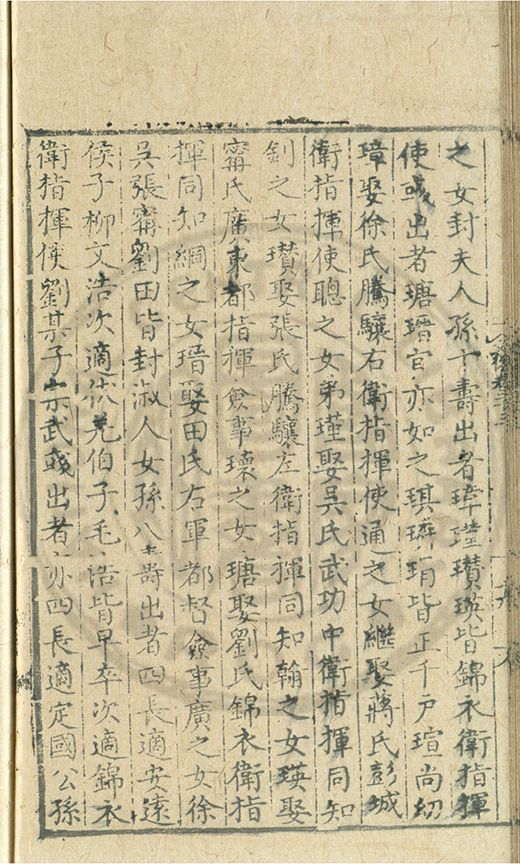 之女封夫人孫十壽出者瑋瑾瓚瑛皆錦衣衛指揮
使彧出者瑭瑨官亦如之琪璘琄皆正千戶瑄尚幼
瑋娶徐氏騰驤右衛指揮使通之女繼娶蔣氏彭城
衛指揮使聰之女弟瑾娶吳氏武功中衛指揮同知
釗之女瓚娶張氏騰驤左衛指揮同知翰之女瑛娶
甯氏廣東都指揮僉事瓌之女瑭娶劉氏錦衣衛指
揮同知綱之女瑨娶田氏右軍都督僉事廣之女徐
吳張甯劉田皆封淑人女孫八壽出者四長適安遠
侯子柳文浩次適伏羌伯子毛浩皆早卒次適錦衣
衛指揮使劉某子宗武彧出者亦四長適定國公孫